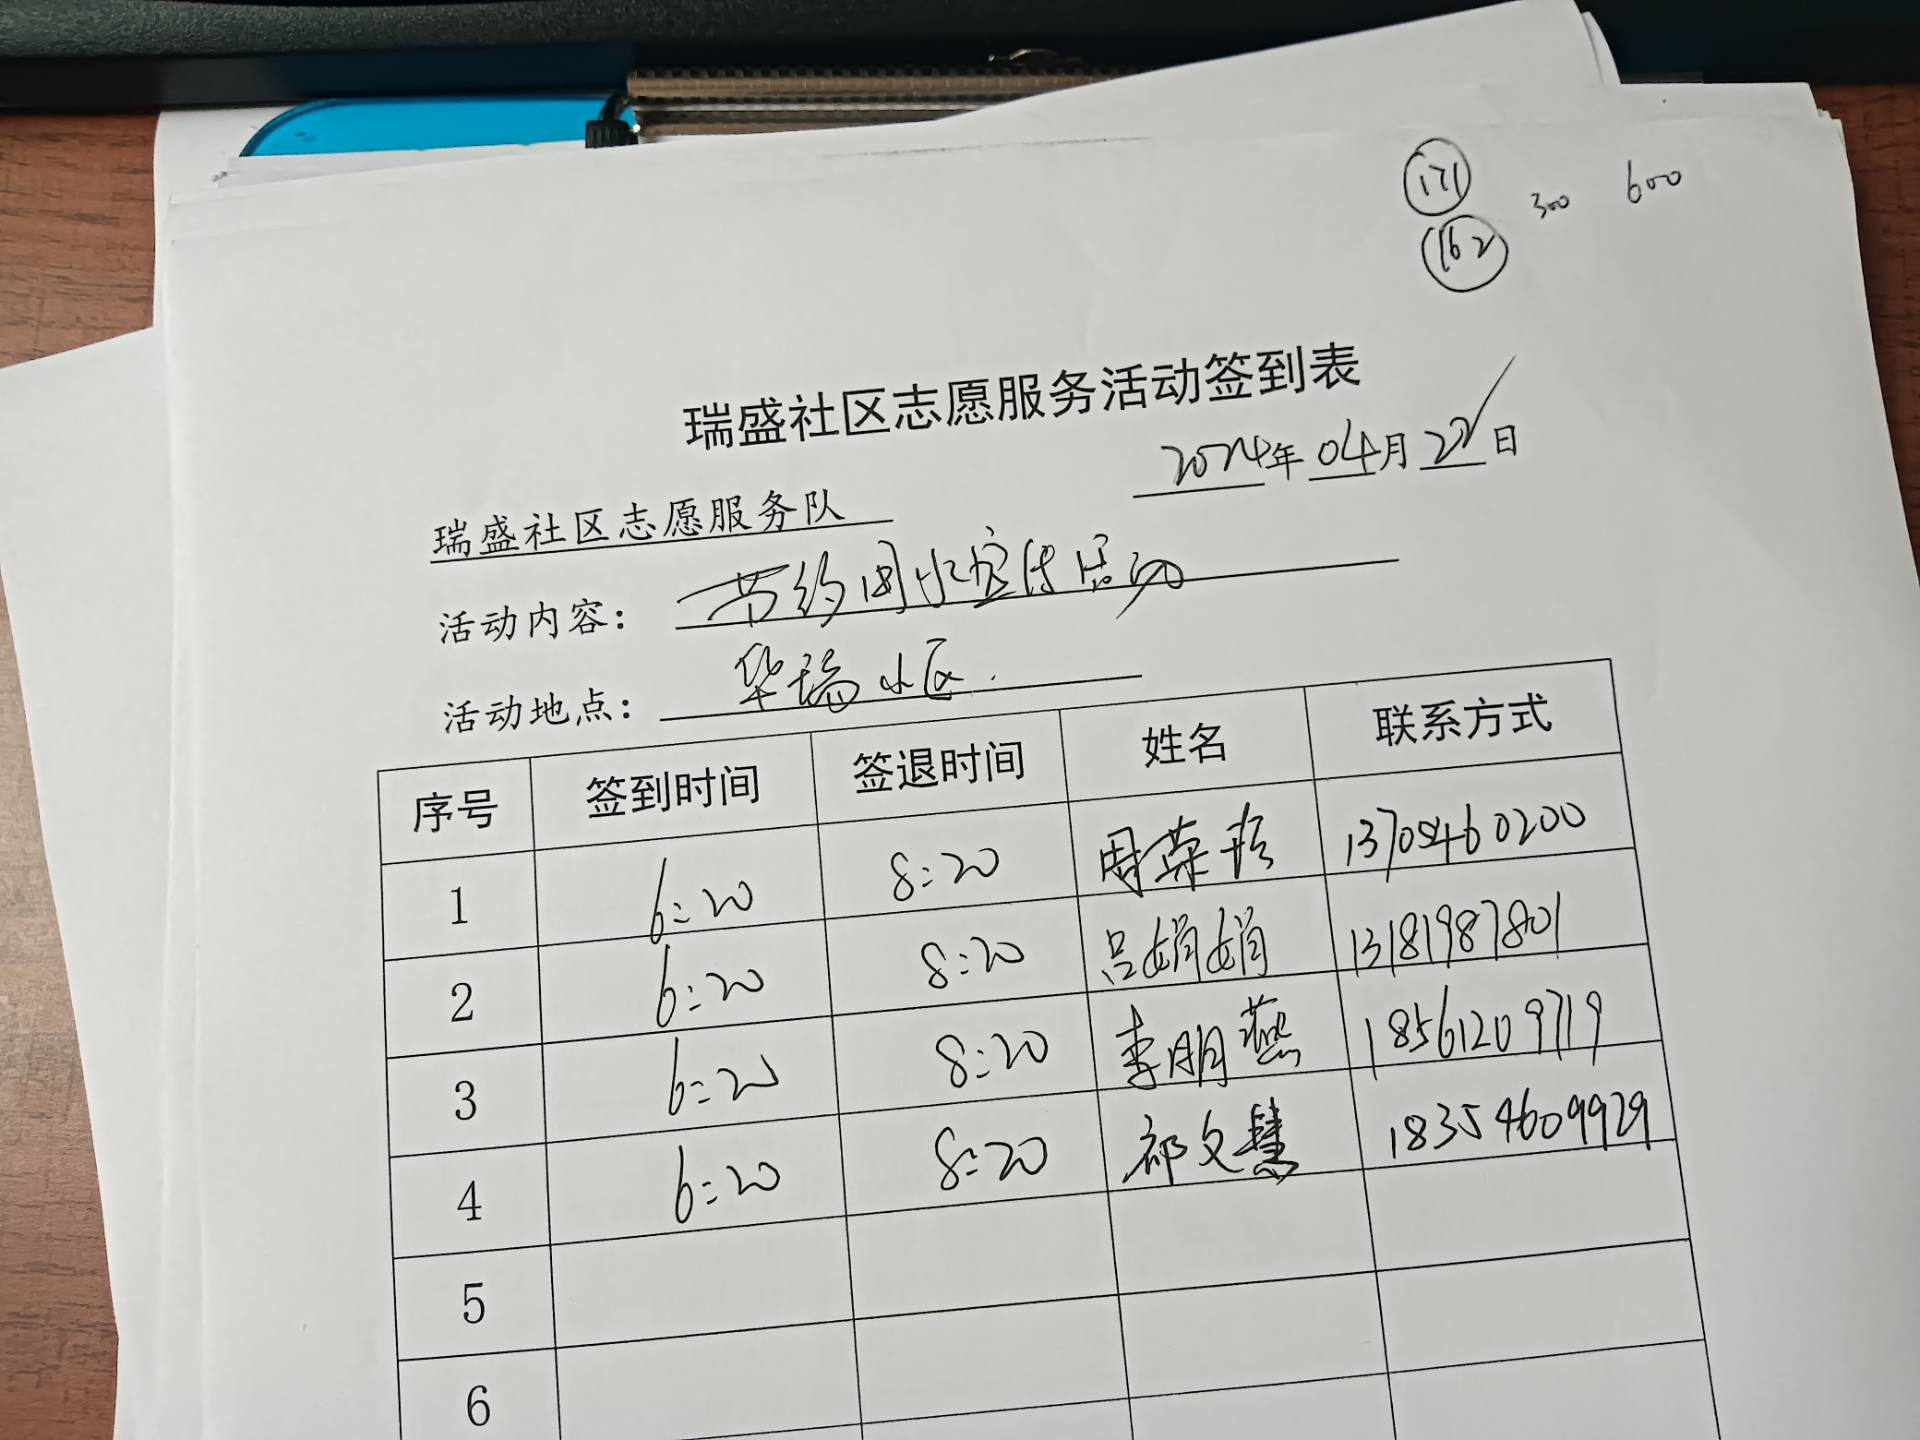 171
300 600
162
瑞盛社区志愿服务活动签到表
2024年04月22日
瑞盛社区志愿服务队
活动内容: 节约用水宣传活动
活动地点: 华瑞小区.
序号 签到时间 签退时间 姓名 联系方式
1 6:20 8:20 周荣珍 13705460200
2 6:20 8:20 吕娟娟 13181987801
3 6:20 8:20 李明燕 18561209719
4 6:20 8:20 祁文慧 18354609929
5
6